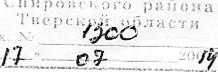 Спировского района
Тверской области
№ 1300
17 " 07 2014